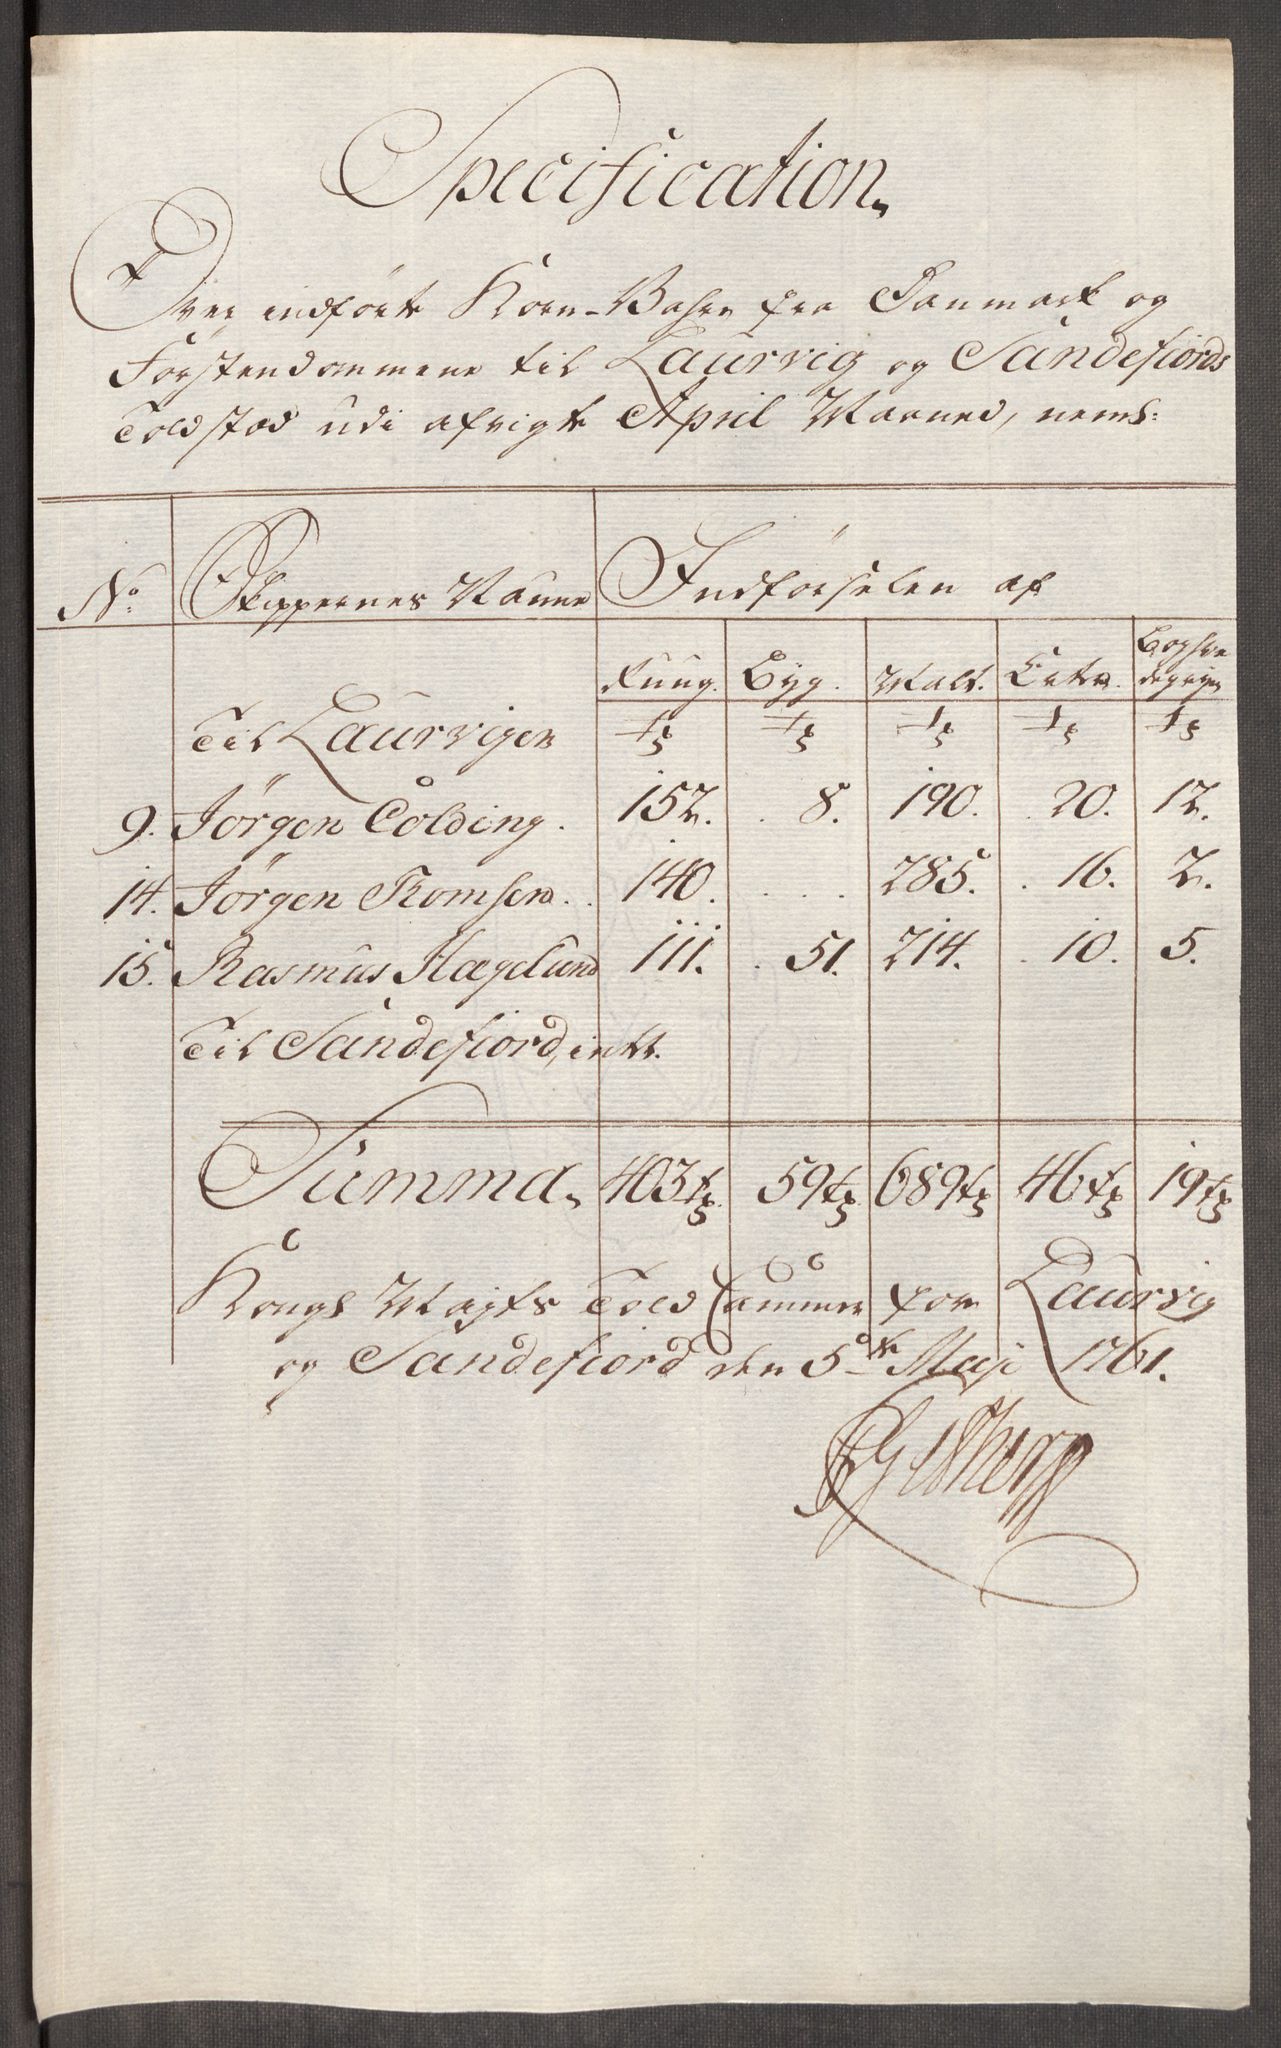 Specification
Over indførte Korn-Vahre fra Danmark og
Førstendommene til Laurvig og Sandefiords
Toldsted udi afvigte April Maaned, neml:
No: Skippernes Nafne Indførselen af
Rug. Byg. Malt. Erter. Boghvedegryn
Til Laurvigen tr tr tr tr tr
9. Jørgen Colding. 152. 8. 190. 20. 12.
14. Jørgen Thomsen 140. 285. 16. 2.
15. Rasmus Hagelund 111. 51. 214. 10. 5.
Til Sandefiord, intet.
Summa 403 tr 59 tr 689 tr 46 tr 19 tr
Kongl Maijts Told Cammer for Laurvig
og Sandefiord den 5te Maji 1761.